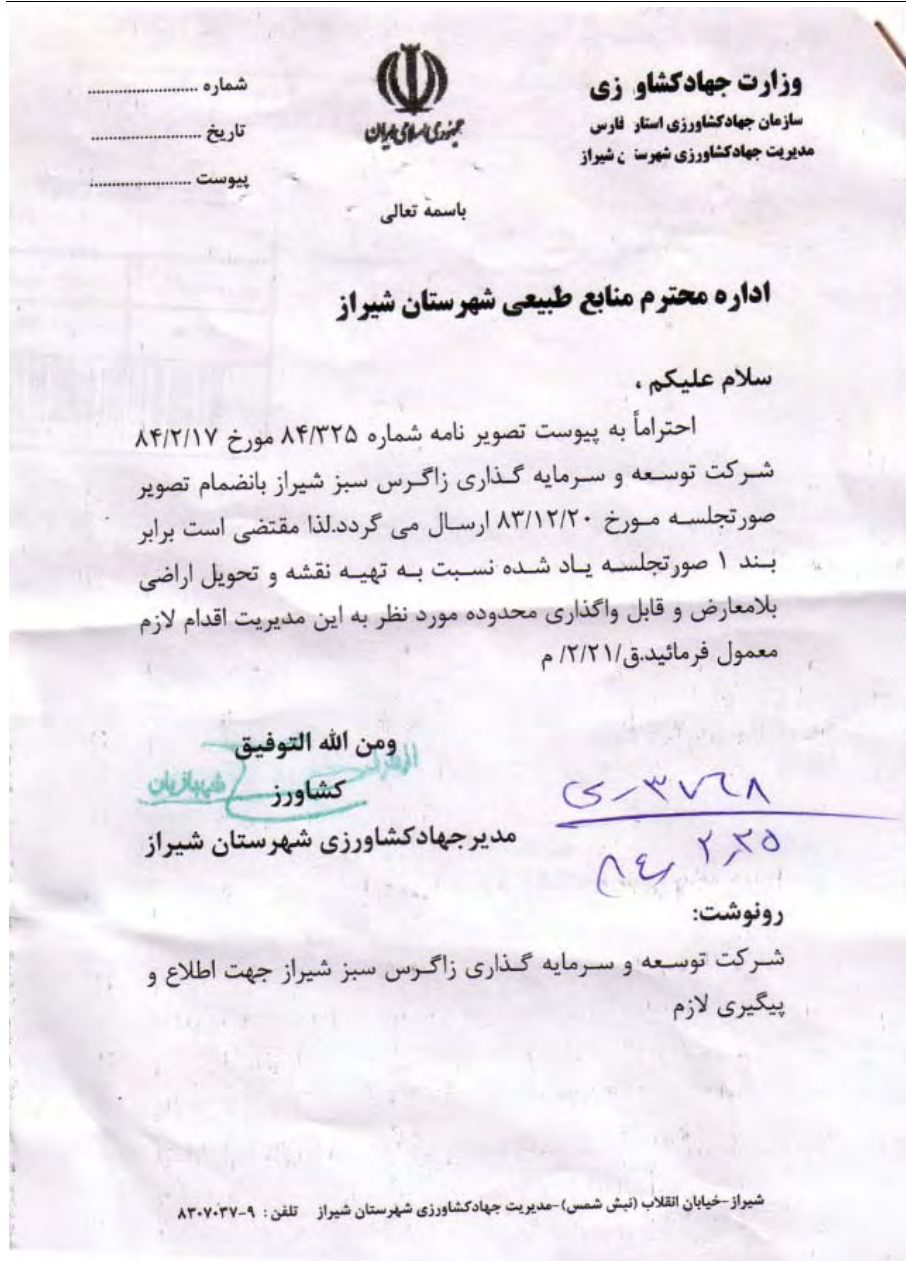 وزارت جهادکشاو زی
سازمان جهادکشاورزی استار فارس
مدیریت جهادکشاورزی شهرستان شیراز
جمهوری اسلامی ایران
شماره ........................
تاریخ ......................
پیوست ......................
باسمه تعالی
اداره محترم منابع طبیعی شهرستان شیراز
سلام علیکم ،
احتراماً به پیوست تصویر نامه شماره ۸۴/۳۲۵ مورخ ۸۴/۲/۱۷
شرکت توسعه و سرمایه گذاری زاگرس سبز شیراز بانضمام تصویر
صورتجلسه مورخ ۸۳/۱۲/۲۰ ارسال می گردد.لذا مقتضی است برابر
بند ۱ صورتجلسه یاد شده نسبت به تهیه نقشه و تحویل اراضی
بلامعارض و قابل واگذاری محدوده مورد نظر به این مدیریت اقدام لازم
معمول فرمائید.ق/۲/۲۱/ م
ومن الله التوفیق
کشاورز
شهبازیان
مدیرجهادکشاورزی شهرستان شیراز
۳۷۶۸ری
۸۴٫۲٫۲۵
رونوشت:
شرکت توسعه و سرمایه گذاری زاگرس سبز شیراز جهت اطلاع و
پیگیری لازم
شیراز-خیابان انقلاب (نبش شمس)-مدیریت جهادکشاورزی شهرستان شیراز تلفن : ۹-۸۳۰۷۰۳۷